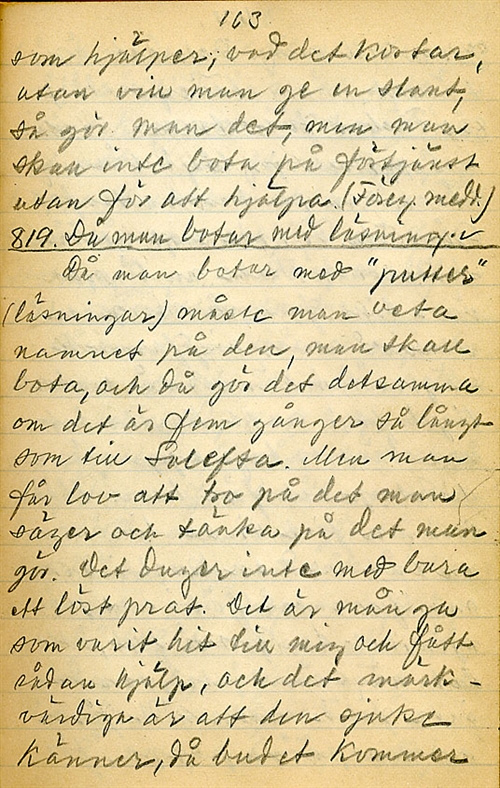 163
som hjälper, vad det kostar,
utan vill man ge en slant,
så gör man det, men man
skall inte bota på förtjänst
utan för att hjälpa. (Föreg. medd.)
819. Då man botar med läsningar
Då man botar med "putter"
(läsningar) måste man veta
namnet på den, man skall
bota, och då gör det detsamma
om det är fem gånger så långt
som till Sollefta. Men man
får lov att tro på det man
säger och tänka på det man
gör. Det duger inte med bara
ett löst prat. Det är många
som varit hit till mig och fått
sådan hjälp, och det märk-
värdiga är att den sjuke
känner, då budet kommer